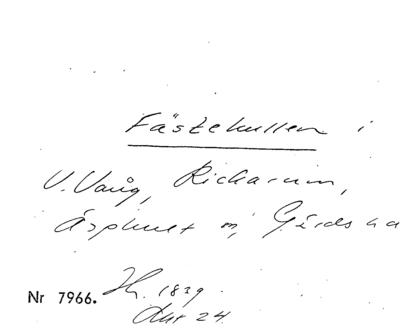 Fästekullen i
V. Vång, Rickarum,
Äsphult m, Gärds ha
Nr 7966. Hh. 1839
Akt 24